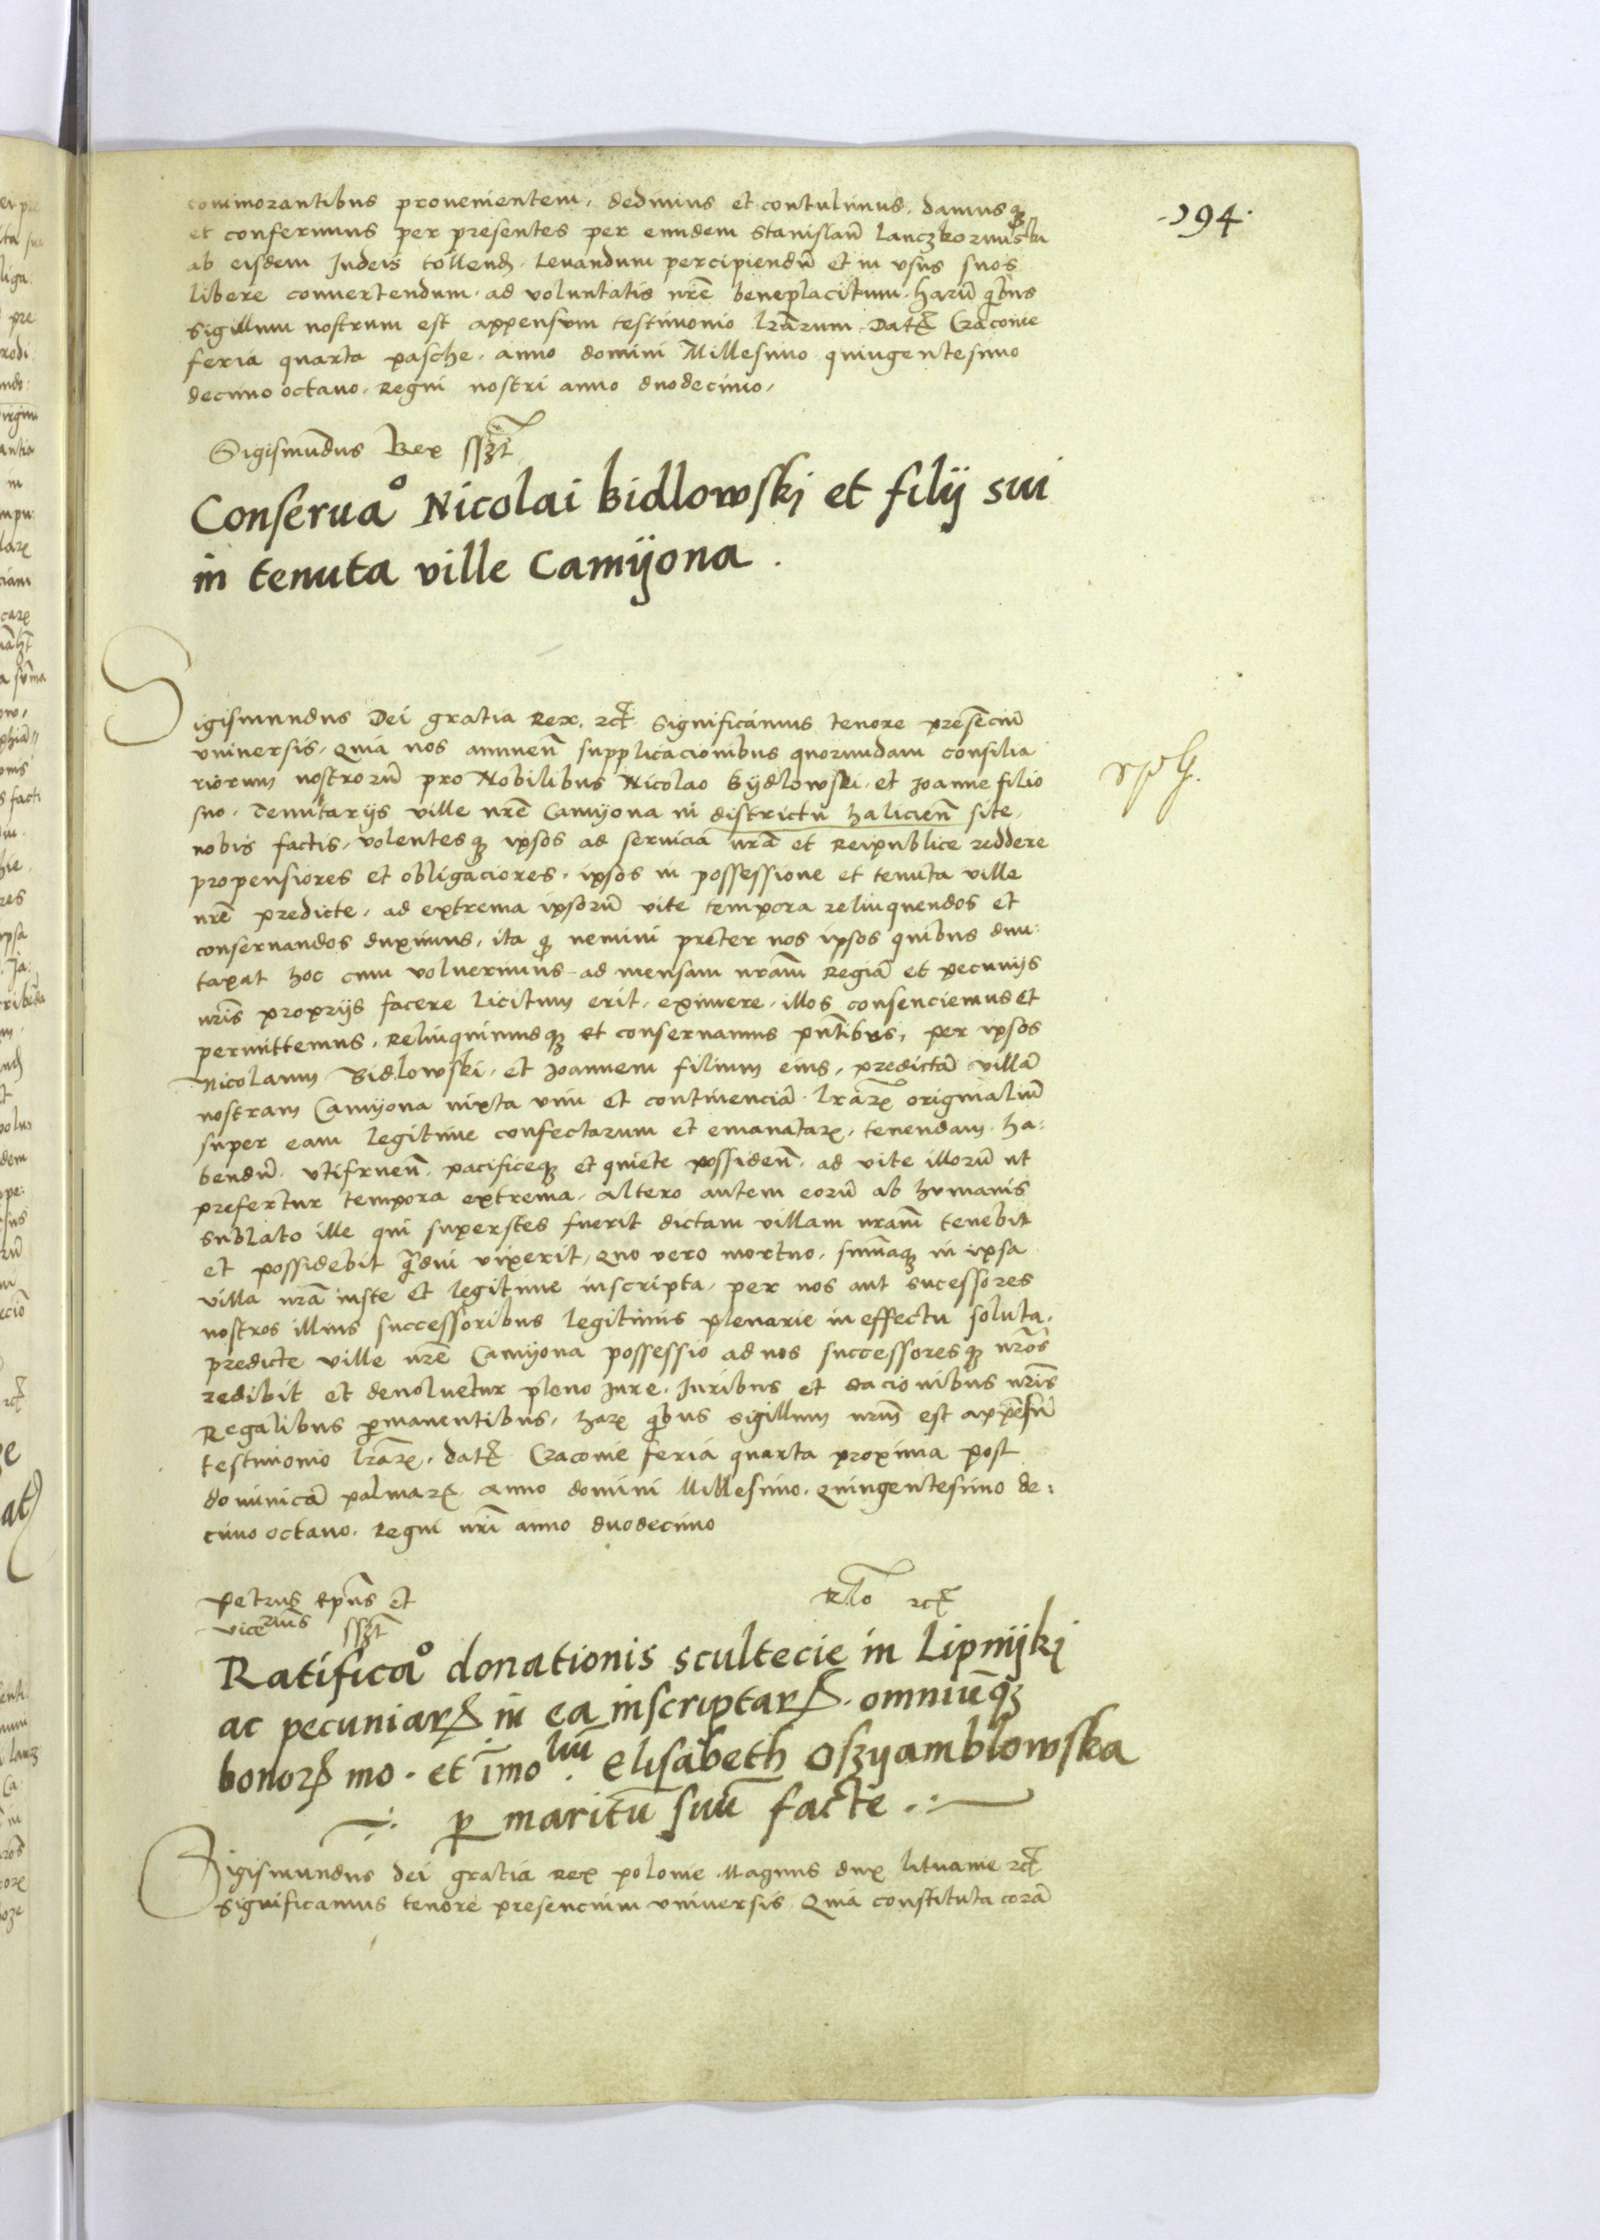 194
commorantibus provenientem, dedimus et contulimus, damusqꝫ
et conferimus per presentes per eundem Stanislaũ Lanczkorunski
ab eisdem Judeis tollend. levandum percipiendũ et in vsus suos
libere convertendum, ad voluntatis nrẽ beneplacitum. Harũ qibus
Sigillum nostrum est appensvm testimonio lrãrum. Dat Cracovie
feria quarta pasche, anno domini Millesimo quingentesimo
decimo octavo, Regni nostri anno duodecimo,
Sigismũdus Rex sszt
Conserua° Nicolai Bidlowskj et filij sui
in tenuta ville Camijona.
Sigismundus Dei gratia Rex, ꝛct Significamus tenore presẽciũ
vniversis, quia nos annuen̄ supplicacionibus quorundam consilia
riorum nostrorũ pro Nobilibus Nicolao Bydlowski, et Joanne filio
suo, Tenutarijs ville nrẽ Camyona in districtu halicien̄ site,
nobis factis, volentesqꝫ ipsos ad servicia nrã et Reipublice reddere
propensiores et obligaciores, ipsos in possessione et tenuta ville
nrẽ predicte, ad extrema ipsorũ vite tempora relinquendos et
conservandos duximus, ita qꝫ nemini preter nos ipsos quibus dun:
taxat hoc cum voluerimus ad mensam nrãm Regiã et pecunijs
nrĩs proprijs facere licitum erit, eximere, illos consenciemus et
permittemus, Relinquimusqꝫ et conservamus pñtibvs, per ipsos
Nicolaum Bidlowski, et Joannem filium eius, predictã villã
nostram Camyona iuxta vim et continenciã lrãrꝝ originaliũ
super eam legitime confectarum et emanatarꝝ, tenendam, ha:
bendũ, vtifruen̄, pacificeqꝫ et quiete possiden̄, ad vite illorũ ut
prefertur tempora extrema, altero autem eorũ ab hvmanis
sublato ille qui superstes fuerit dictam villam nrãm tenebit
et possidebit qãdiu vixerit, quo vero mortuo, sum̄aqꝫ in ipsa
villa nrã iuste et legitime inscripta, per nos aut sucessores
nostros illius successoribus legitimis plenarie in effectu soluta,
predicte ville nrẽ Camyona possessio ad nos successoresqꝫ nrõs
redibit et devoluetur pleno Jure. Juribus et dacionibus nrĩs
Regalibus ꝑmanentibus, harꝝ qibus sigillum nrũm est appẽsũ
testimonio lrãrꝝ, dat Cracovie feria quarta proxima post
dominicã palmarꝝ anno domini Millesimo quingentesimo de:
cimo octavo, Regni nrĩ anno dvodecimo
Petrus Epũs et
vicecnũs sszt
Rlõ ꝛct
Ratifica° donationis scultecie in Lipnijkj
ac pecuniarꝝ in ea inscriptarꝝ. omniũqꝫ
bonorꝝ mo. et im̄olium. Elisabeth Oszyamblowska
ꝑ maritũ suũ facte
Sigismundus dei gratia Rex polonie Magnus dux lituanie ꝛct
significamus tenore presencium vniversis Quia constituta corã